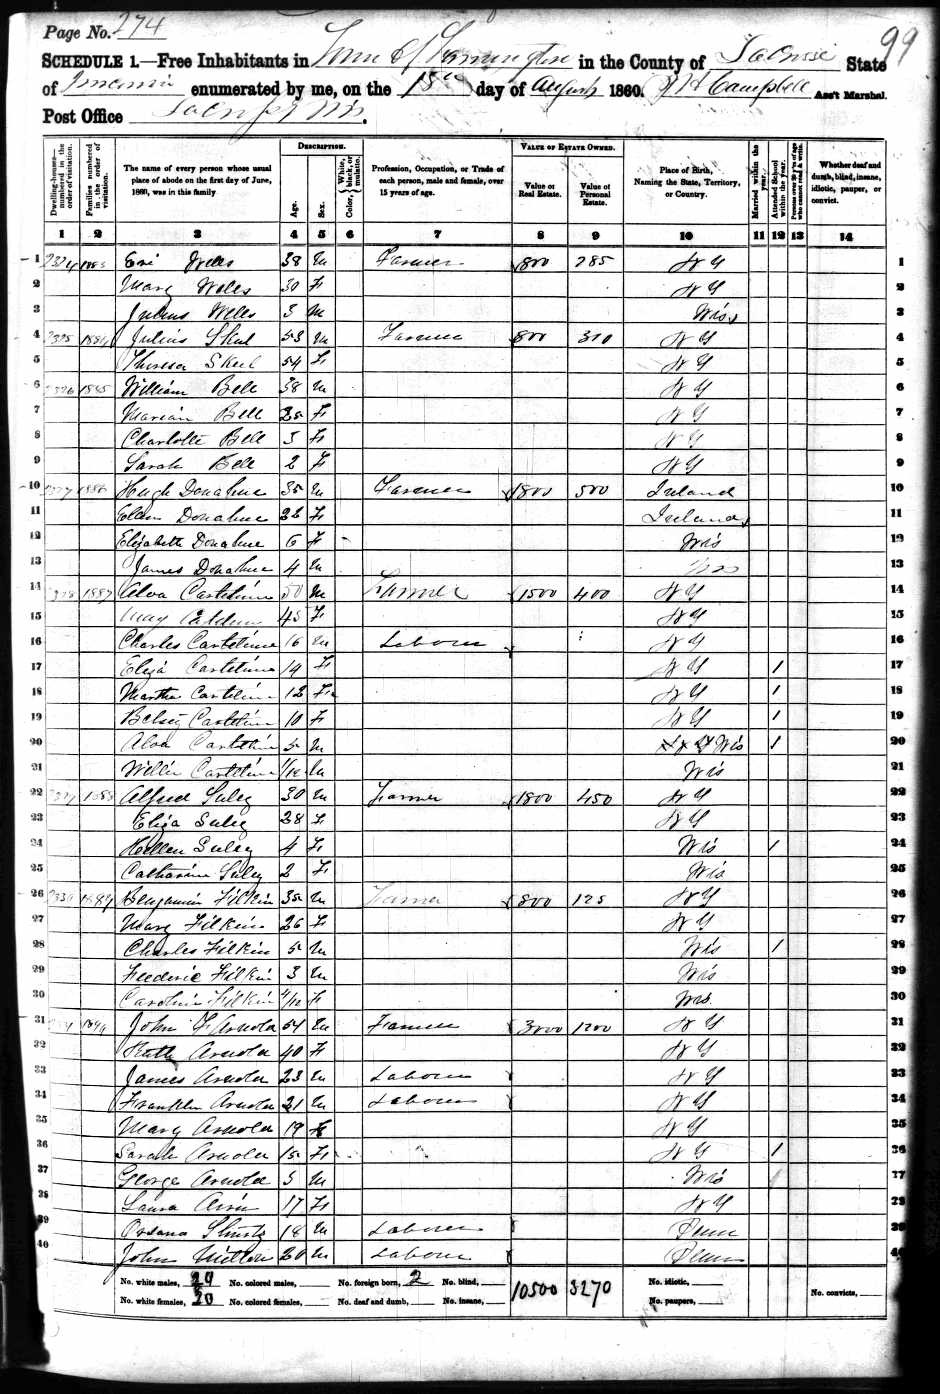 Page No. 274
99
SCHEDULE 1.—Free Inhabitants in Town of Farmington in the County of LaCrosse State
of enumerated by me, on the 18th day of August 1860. Campbell Ass't Marshal.
Post Office Wis.
DESCRIPTION. VALUE OF ESTATE OWNED.
Dwelling-houses—numbered in the order of visitation. Families numbered in the order of visitation. The name of every person whose usual place of abode on the first day of June, 1860, was in this family Age. Sex. Color, { White, black, or mulatto. Profession, Occupation, or Trade of each person, male and female, over 15 years of age. Value of Real Estate. Value of Personal Estate. Place of Birth, Naming the State, Territory, or Country. Married within the year. Attended School within the year. Persons over 20 y'rs of age who cannot read & write. Whether deaf and dumb, blind, insane, idiotic, pauper, or convict.
1 2 3 4 5 6 7 8 9 10 11 12 13 14
1 Wells 38 m Farmer 800 285 N Y 1
2 Mary Wells 30 F N Y 2
3 Julius Wells 3 m Wis 3
4 1884 Julius 53 m Farmer 800 310 N Y 4
5 Theresa 54 F N Y 5
6 2326 1885 William Bell 38 m N Y 6
7 Marian Bell 25 F N Y 7
8 Charlotte Bell 3 F N Y 8
9 Sarah Bell 2 F N Y 9
10 1886 Hugh Donahue 35 m Farmer 1800 500 Ireland 10
11 Ellen Donahue 22 F Ireland 11
12 Elizabeth Donahue 6 F Wis 12
13 James Donahue 4 m Wis 13
14 1887 Alva 50 m Farmer 1500 400 N Y 14
15 45 F N Y 15
16 Charles 16 m Labourer N Y 16
17 Eliza 14 F N Y 1 17
18 Martha 12 F N Y 1 18
19 Betsey 10 F N Y 1 19
20 Alva 5 m Wis 1 20
21 Willie 1/12 m Wis 21
22 1888 Alfred 30 m Farmer 1800 450 N Y 22
23 Eliza 28 F N Y 23
24 Hellen 4 F Wis 1 24
25 Catharine 2 F Wis 25
26 1889 Benjamin Filkin 35 m Farmer 800 125 N Y 26
27 Mary Filkin 26 F N Y 27
28 Charles Filkin 5 m Wis 1 28
29 Frederic Filkin 3 m Wis 29
30 Caroline Filkin 4/12 F Wis 30
31 1890 John F Arnold 54 m Farmer 3000 1200 N Y 31
32 Ruth Arnold 40 F N Y 32
33 James Arnold 23 m Labourer N Y 33
34 Franklin Arnold 21 m Labourer N Y 34
35 Mary Arnold 19 F N Y 35
36 Sarah Arnold 15 F N Y 1 36
37 George Arnold 5 m Wis 37
38 Laura 17 F N Y 38
39 18 m Labourer Penn 39
40 John 20 m Labourer Penn 40
No. white males, No. colored males, No. foreign born, 2 No. blind, 10500 3270 No. idiotic,
No. white females, 20 No. colored females, No. deaf and dumb, No. insane, No. paupers, No. convicts,